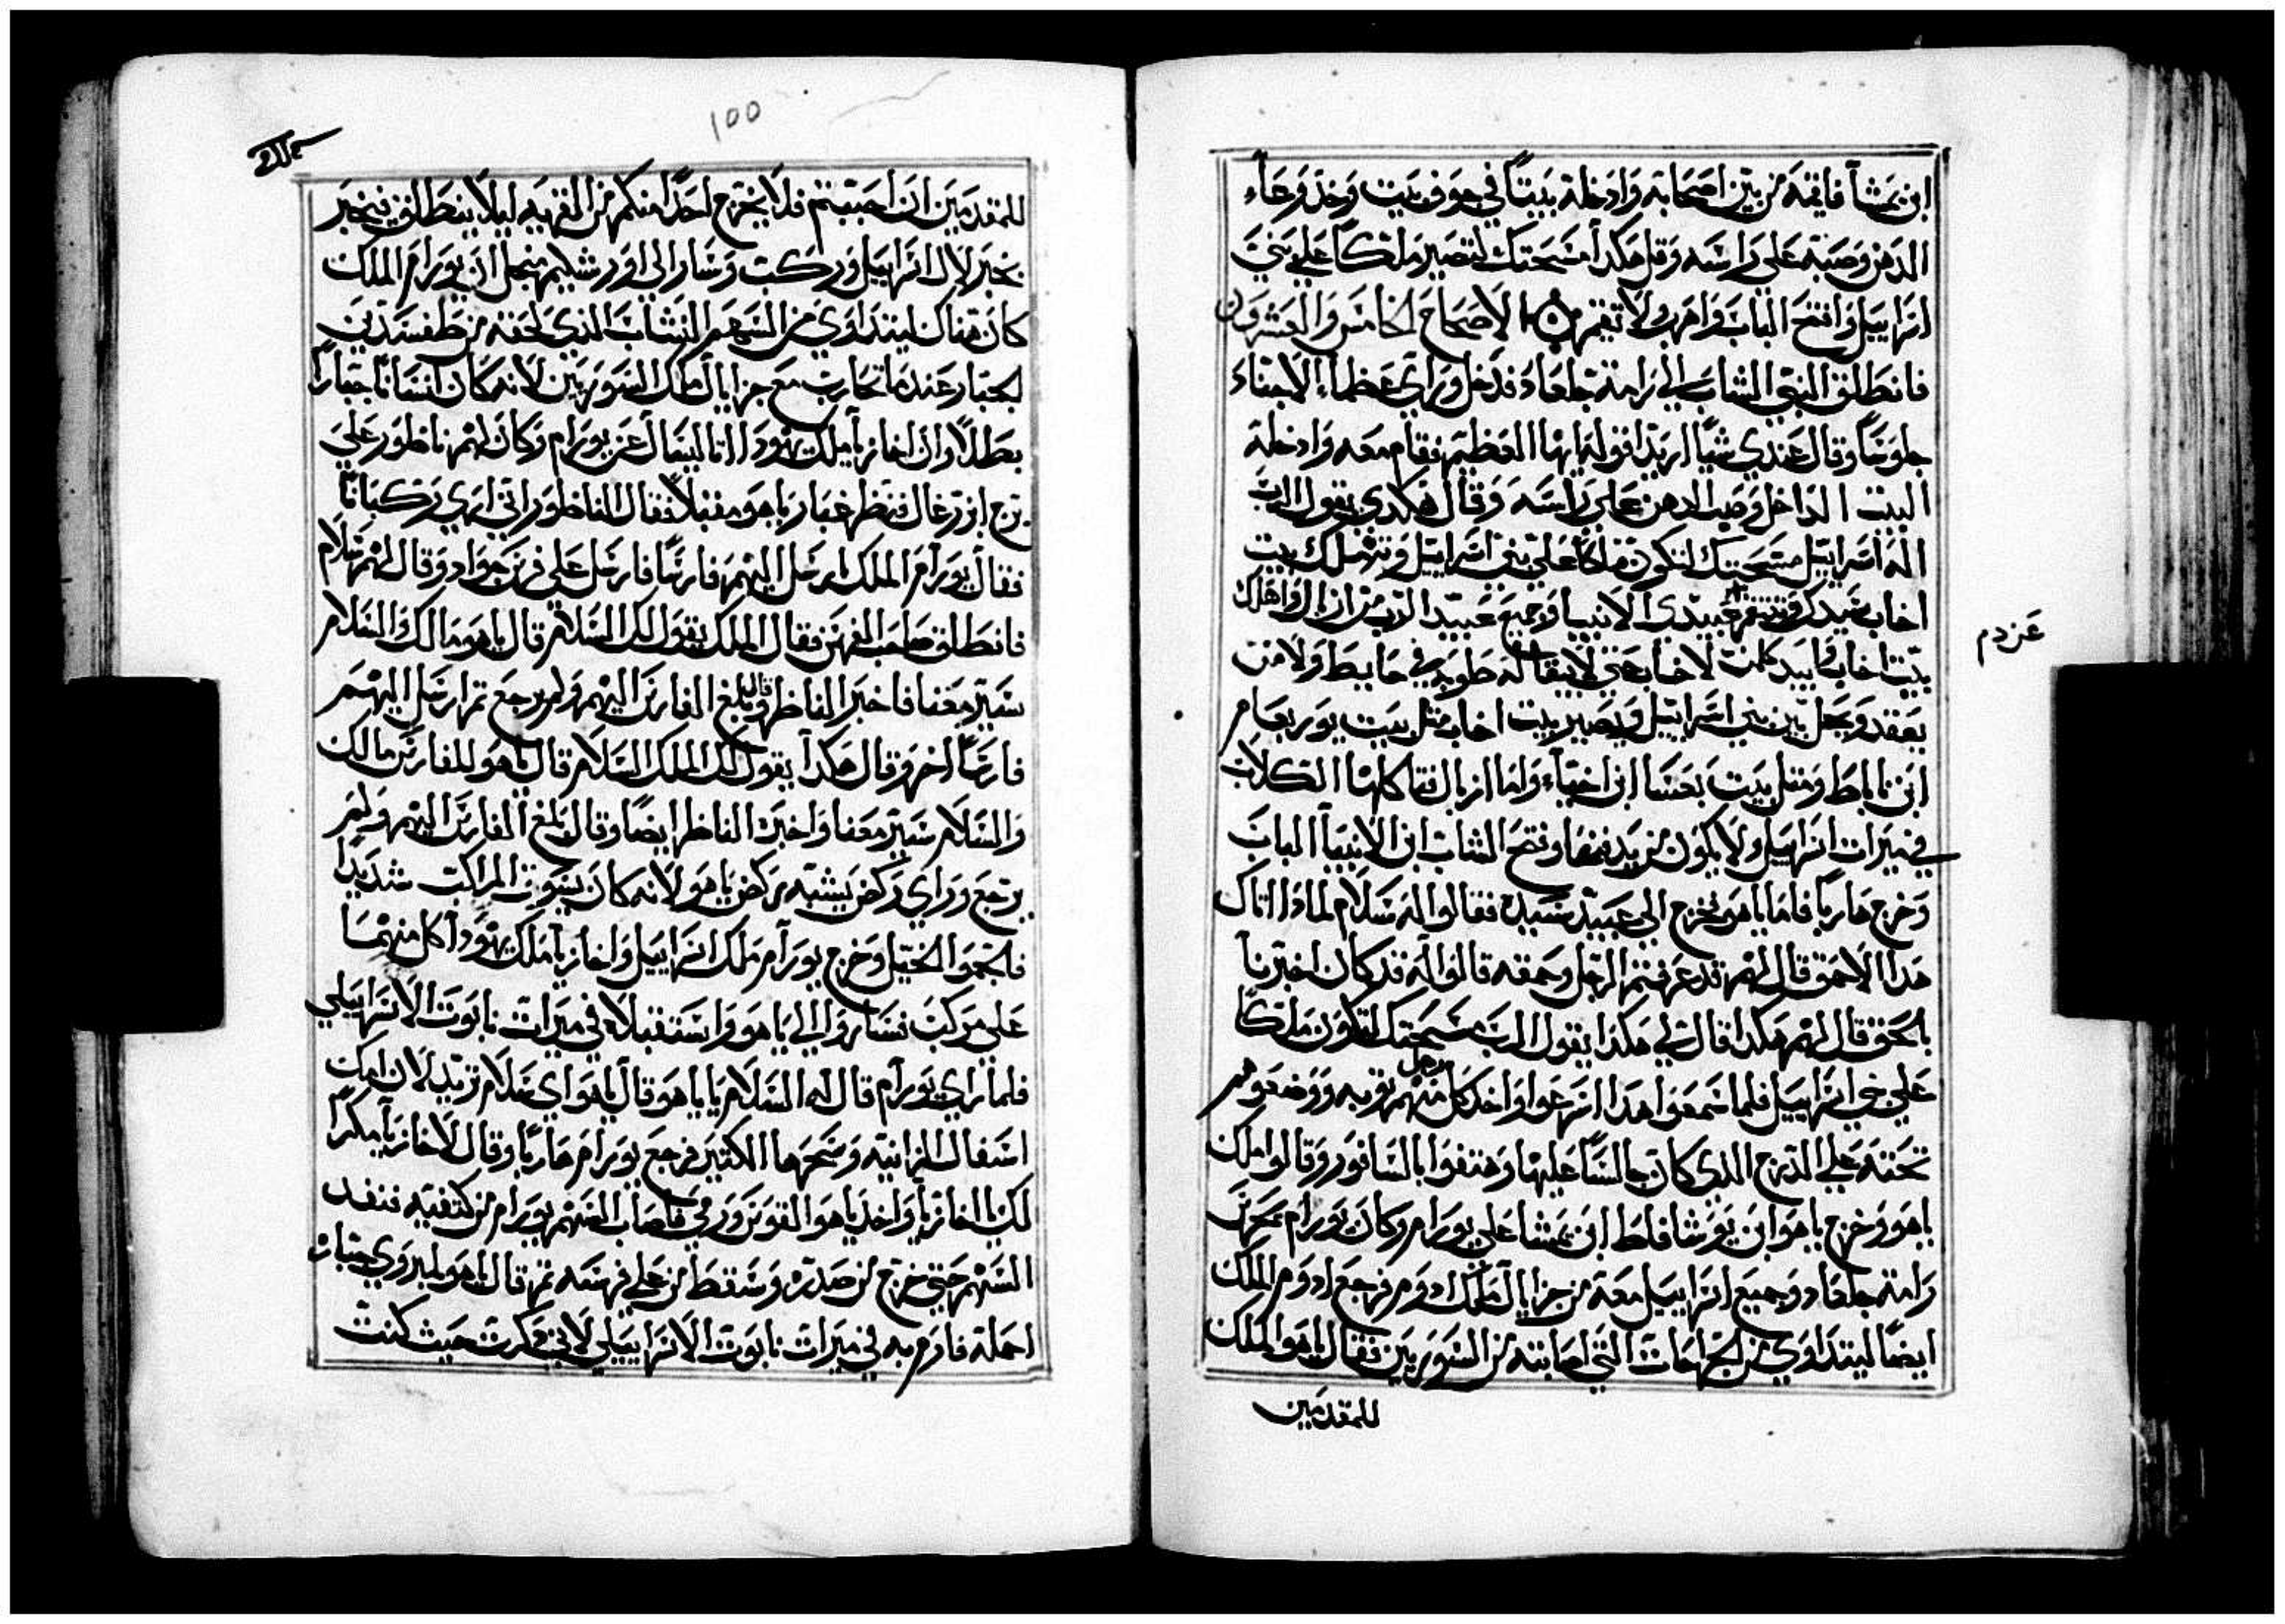 ابن نمشا فاقمه من بين اصحابه وادخله بيتاً في جوف بيت وخذ وعاء
الدهن وصبه على راسه وقل هكدا مسحتك لتصير ملكاً على بني
اسراييل وافتح الباب واهرب ولا تقيم الاصحاح الخامس والعشرون
فانطلق النبي الشاب الي رامة جلعاد فدخل وراي عظماء الاجناد
جلوساً وقال عندي شياً اريد اقوله ايها العظيم فقام معه وادخله
البيت الداخل وصب الدهن على راسه وقال هكدي يقول الرب
اله اسراييل مسحتك لتكون ملكاً على بني اسراييل وتهلك بيت
اخاب سيدك وتنتقم عبيدي الانبيا وجميع عبيد الرب من ازبال واهلك
عن دم
بيت اخاب وابيد كلمن لاخاب حتي لا يبقا له طوبه في حايط ولا من
يعقد ويحل بين بني اسراييل ويصير بيت اخاب مثل بيت يوربعام
ابن ناباط ومثل بيت بعسا ابن اخيا واما ازبال فتاكلها الكلاب
في ميرات اسراييل ولا يكون من يدفنها وفتح الشاب ابن الانبيا الباب
وخرج هارباً فاما ياهو فخرج الي عبيد سيده فقالوا له سلام لمادا اتاك
هدا الاحمق قال لهم قد عرفتم الرجل وحمقه قالوا له قد كان اخبرنا
بالحق قال لهم هكدا قال لي هكدا يقول الرب مسحتك لتكون ملكاً
على بني اسراييل فلما سمعوا هدا اسرعوا واخد كل رجل منهم توبه ووضعوهم
تحته على الدرج الدي كان جالساً عليها وهتفوا بالسافور وقالوا ملك
ياهو وخرج ياهو ابن يوشافاط ابن نمشا على يورام وكان يورام
رامة جلعاد وجميع اسراييل معه من حزايال ملك ادوم فرجع ادوم الملك
ايضاً ليتداوي من الجراحات التي اصابته من السوريين فقال ياهو الملك
للمقدمين
100
للمقدمين ان احببتم فلا يخرج احداً منكم من القريه ليلا ينطلق فيخبر
بخبر لال اسراييل وركب وسار الي اورشليم من اجل ان يورام الملك
كان هناك ليتداوي من السهم النشاب الذي لحقه من
الجبار عندما تحارب مع حزايال ملك السوريين لانه كان انساناً جباراً
بطلاً وان اخازيا ملك يهودا اتا ليسال عن يورام وكان لهم ناظور على
برج ازرعال فنظر غبار ياهو مقبلاً فقال الناظور اني اري ركباناً
فقال يورام الملك ارسل اليهم فارساً فارسل على فرس جواد وقال لهم سلام
فانطلق صاحب الفرس فقال الملك يقول لك السلام قال ياهو مالك والسلام
سير معنا فاخبر الناظر وقال بلغ الفارس اليهم ولم يرجع تم ارسل اليهم
فارساً اخر وقال هكدا يقول لك الملك السلام قال ياهو للفارس مالك
والسلام سير معنا واخبر الناظر ايضاً وقال بلغ الفارس اليهم ولم
يرجع وراي ركض يشبه ركض ياهو لانه كان يسوق المراكب شديداً
فالجموا الخيل وخرج يورام ملك اسراييل واخازيا ملك يهودا كل منهما
على مركب فساروا الي ياهو واستقبلاه في ميرات نابوت الاسراييلي
فلما راي يورام قال له السلام يا ياهو قال ياهو اي سلام تريد لان امك
اشغال الزانيه وسحرها الكتير فرجع يورام هارباً وقال لاخازيا مكراً
لك يا اخازيا واخد ياهو القوس ورمي فاصاب السهم يورام من كتفيه فنفد
السهم حتي خرج من صدره وسقط من على فرسه تم قال ياهو
احمله فارم به في ميرات نابوت الاسراييلي لاني دكرت حيث كنت